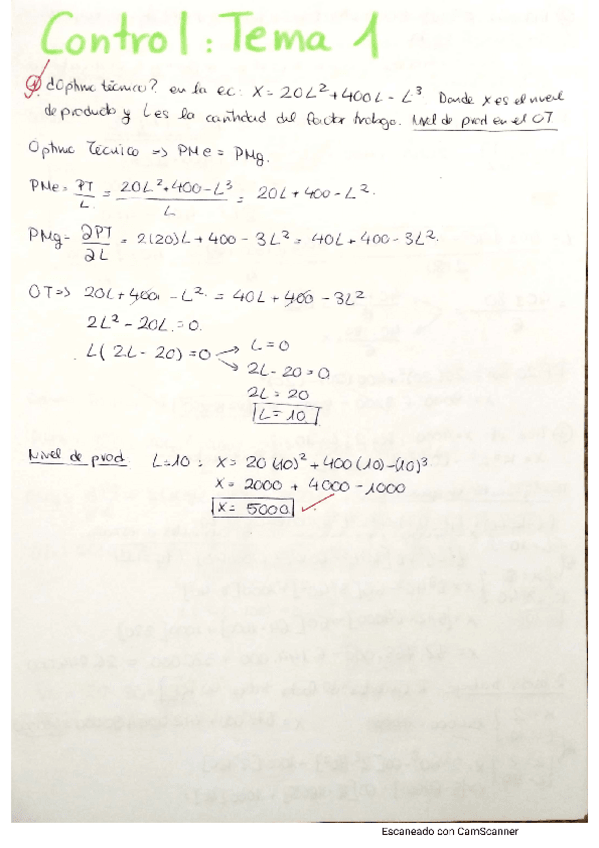 Control: Tema 1
① ¿Óptimo técnico? en la ec: X = 20L² + 400L - L³. Donde x es el nivel
de producto y L es la cantidad del factor trabajo. Nivel de prod en el OT
Óptimo Técnico => PMe = PMg.
PMe = PT/L = (20L² + 400 - L³)/L = 20L + 400 - L².
PMg = ∂PT/∂L = 2(20)L + 400 - 3L² = 40L + 400 - 3L².
OT => 20L + 400 - L² = 40L + 400 - 3L²
2L² - 20L = 0.
L(2L - 20) = 0 → L = 0
→ 2L - 20 = 0
2L = 20
L = 10
Nivel de prod L=10 : X = 20(10)² + 400(10) - (10)³
X = 2000 + 4000 - 1000
X = 5000 ✓
Escaneado con CamScanner